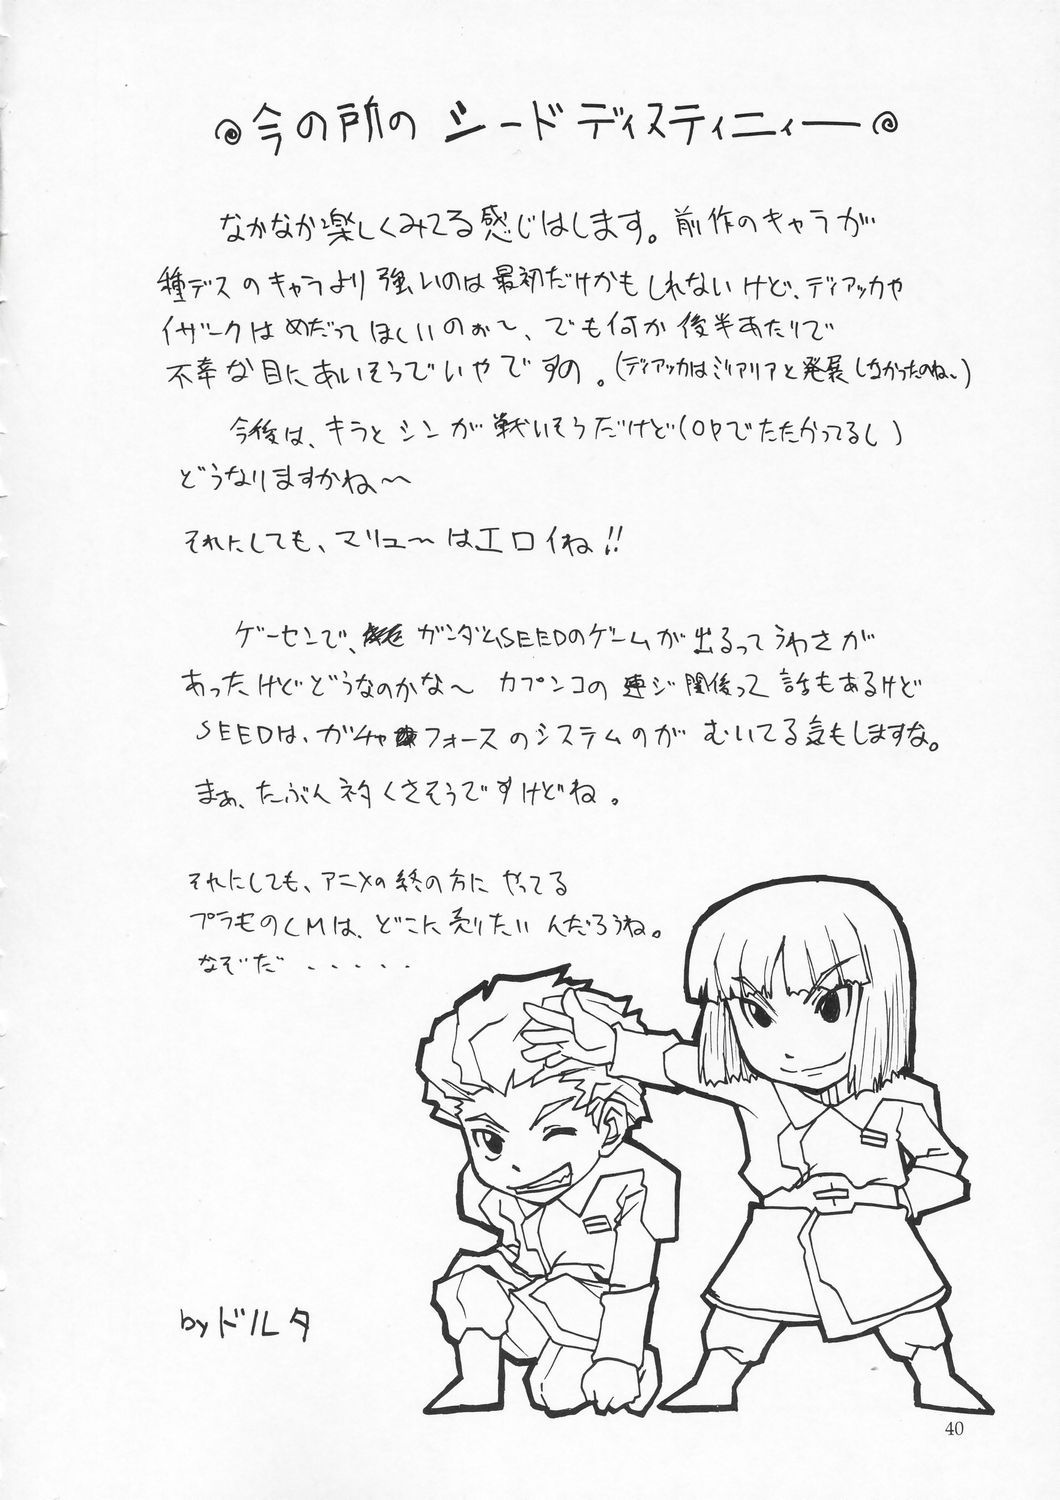 今の所の シードディスティニィー
なかなか楽しくみてる感じはします。前作のキャラが
種デスのキャラより強いのは最初だけかもしれないけど、ディアッカや
イザークはめだってほしいのぉ〜、でも何か後半あたりで
不幸な目にあいそうでいやですの。(ディアッカはミリアリアと発展しなかったのね〜)
今後は、キラとシンが戦いそうだけど(OPでたたかってるし)
どうなりますかね〜
それにしても、マリュ〜はエロイね!!
ゲーセンで、ガンダムSEEDのゲームが出るってうわさが
あったけどどうなのかな〜 カプンコの連ジ関係って話もあるけど
SEEDは、ガチャフォースのシステムのが むいてる気もしますな。
まぁ、たぶんネタくさそうですけどね。
それにしても、アニメの終の方に やってる
プラモのCMは、どこに売りたいんだろうね。
なぞだ ・・・・・
by ドルタ
40